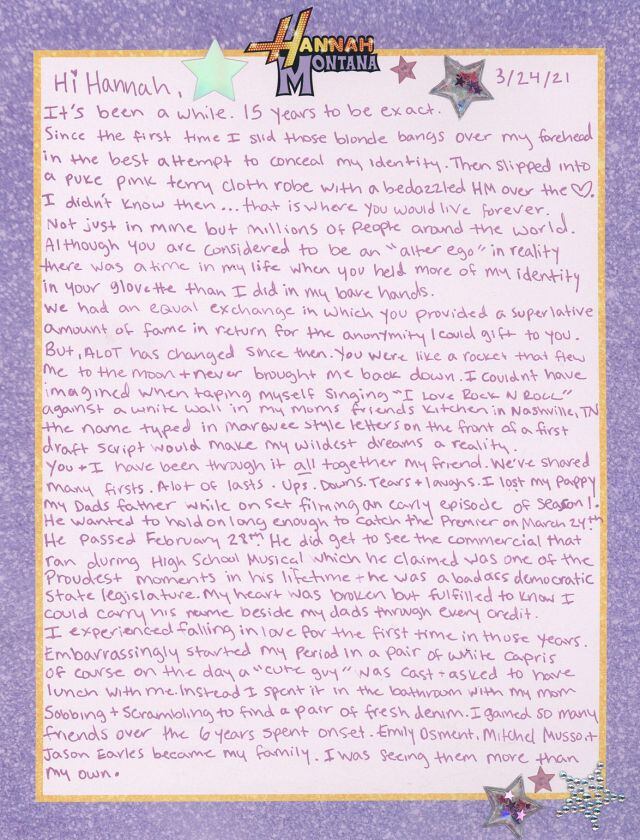 HANNAH
MONTANA
Hi Hannah,
3/24/21
It's been a while. 15 years to be exact.
Since the first time I slid those blonde bangs over my forehead
in the best attempt to conceal my identity. Then slipped into
a puke pink terry cloth robe with a bedazzled HM over the ♡.
I didn't know then... that is where you would live forever.
Not just in mine but millions of people around the world.
Although you are considered to be an "alter ego" in reality
there was a time in my life when you held more of my identity
in your glovette than I did in my bare hands.
We had an equal exchange in which you provided a superlative
amount of fame in return for the anonymity I could gift to you.
But, ALOT has changed since then. You were like a rocket that flew
me to the moon + never brought me back down. I couldnt have
imagined when taping myself singing "I Love Rock N Roll"
against a white wall in my moms friends kitchen in Nashville, TN
the name typed in marquee style letters on the front of a first
draft script would make my wildest dreams a reality.
You + I have been through it all together my friend. We've shared
many firsts. Alot of lasts. Ups. Downs. Tears + laughs. I lost my pappy
my Dads father while on set filming an early episode of season 1.
He wanted to hold on long enough to catch the Premier on March 24th
He passed February 28th. He did get to see the commercial that
ran during High School Musical which he claimed was one of the
Proudest moments in his lifetime + he was a badass democratic
state legislature. My heart was broken but fulfilled to know I
could carry his name beside my dads through every credit.
I experienced falling in love for the first time in those years.
Embarrassingly started my period in a pair of white capris
of course on the day a "cute guy" was cast + asked to have
lunch with me. Instead I spent it in the bathroom with my mom
Sobbing + scrambling to find a pair of fresh denim. I gained so many
friends over the 6 years spent on set. Emily Osment, Mitchel Musso +
Jason Earles became my family. I was seeing them more than
my own.